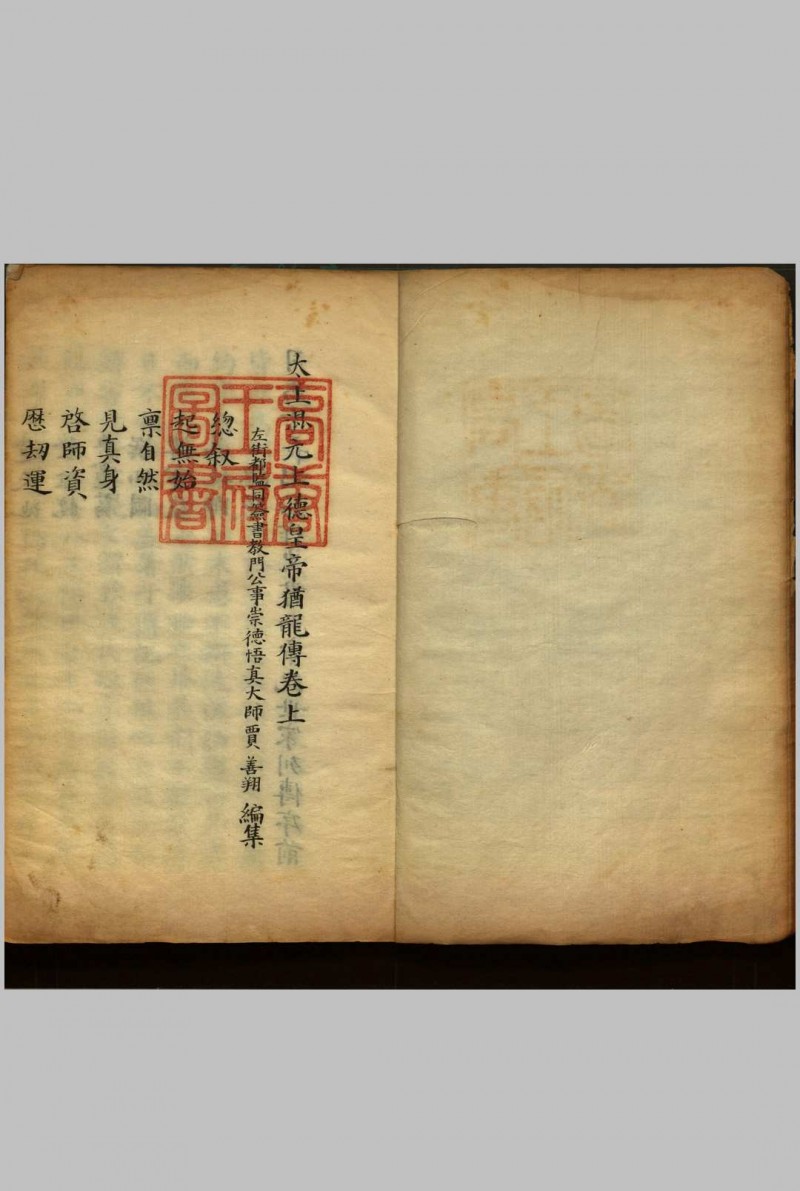 太上混元上德皇帝猶龍傳卷上
左街都監同簽書教門公事崇德悟真大師賈善翔編集
總叙
起無始
禀自然
見真身
啓師資
歷劫運